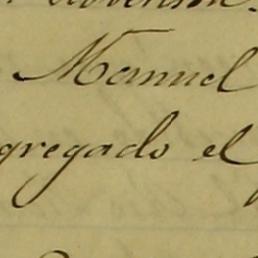 Manuel
gregado el